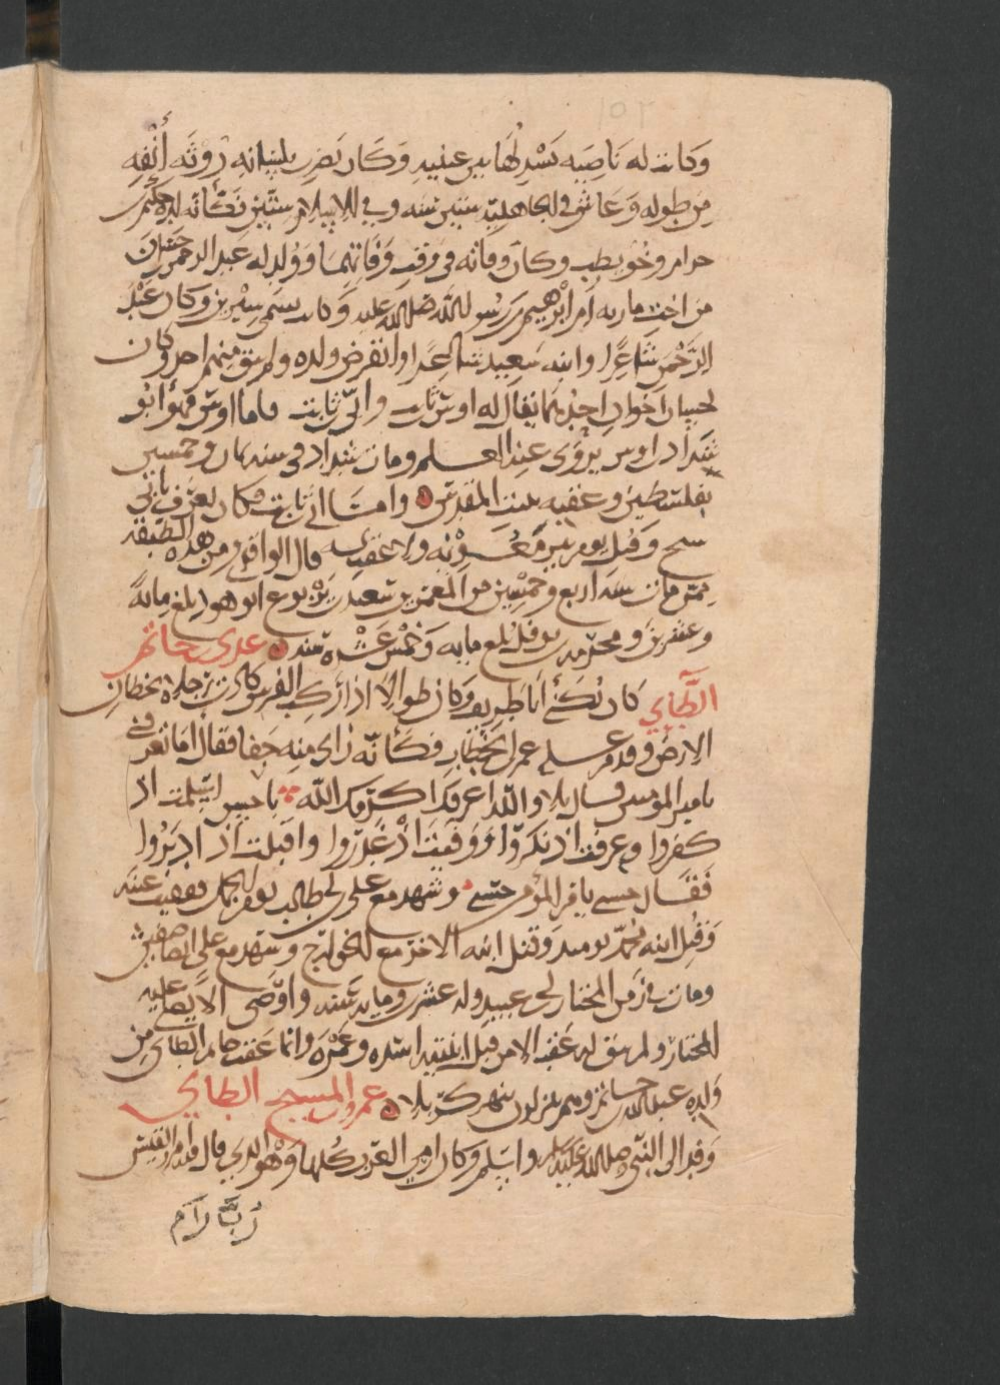 وكانت له ناصية يسدلها بين عينيه وكان يضرب بلسانه روثة أنفه
من طوله وعاش في الجاهلية ستين سنة وفي الاسلام ستين فكأنه لدة حكيم بن
حزام وحويطب وكان وفاته في وقت وفاتهما وولد له عبد الرحمن بن حسان
من اخت مارية أم ابرهيم بن رسول الله صلى الله عليه وكانت تسمى سيرين وكان عبد
الرحمن شاعرا وابنه سعيد شاعرا وانقرض ولده ولم يبق منهم احد وكان
لحسان اخوان احدهما يقال له اوس بن ثابت وابي بن ثابت فاما اوس فهو ابو
شداد بن اوس يروى عنه العلم ومات شداد في سنة ثمان وخمسين
بفلسطين وعقبه ببيت المقدس واما ابي بن ثابت فكان يعرف بابي
شيخ وقتل يوم بئر معونة ولا عقب له قال الواقدي ومن هذه الطبقة
ممن مات سنة اربع وخمسين من المعمرين سعيد بن يربوع ابو هود بلغ ماية
وعشرين ومخرمة بن نوفل بلغ ماية وخمس عشرة سنة عدي بن حاتم
الطاي كان يكنى أبا طريف وكان طوالا اذا ركب الفرس كادت رجلاه تخطان
الارض وقدم على عمر بن الخطاب فكأنه راى منه جفا فقال اما تعرفني
يا مير المومنين قال بلى والله اعرفك اكرمك الله باحسن اسلمت اذ
كفروا وعرفت اذ نكروا ووفيت اذ غدروا واقبلت اذ ادبروا
فقال حسبي يا مير المؤمنين حسبي وشهد مع علي بن ابي طالب يوم الجمل ففقئت عينه
وقتل ابنه محمد يومئذ وقتل ابنه الاخر مع الخوارج وشهد مع علي ايضا صفين
ومات في زمن المختار بن ابي عبيد وله عشرون وماية سنة واوصى الا يصلي عليه
المختار ولم يبق له عقب الا من قبل ابنتيه اسدة وعمرة وانما عقب حاتم الطاي من
ولده عبد الله بن حاتم وهم ينزلون بنهر كربلا عمرو بن المسبح الطاي
وفد الى النبي صلى الله عليه وسلم واسلم وكان ارمى العرب كلها وهو الذي قال فيه امرؤ القيس
رب رام